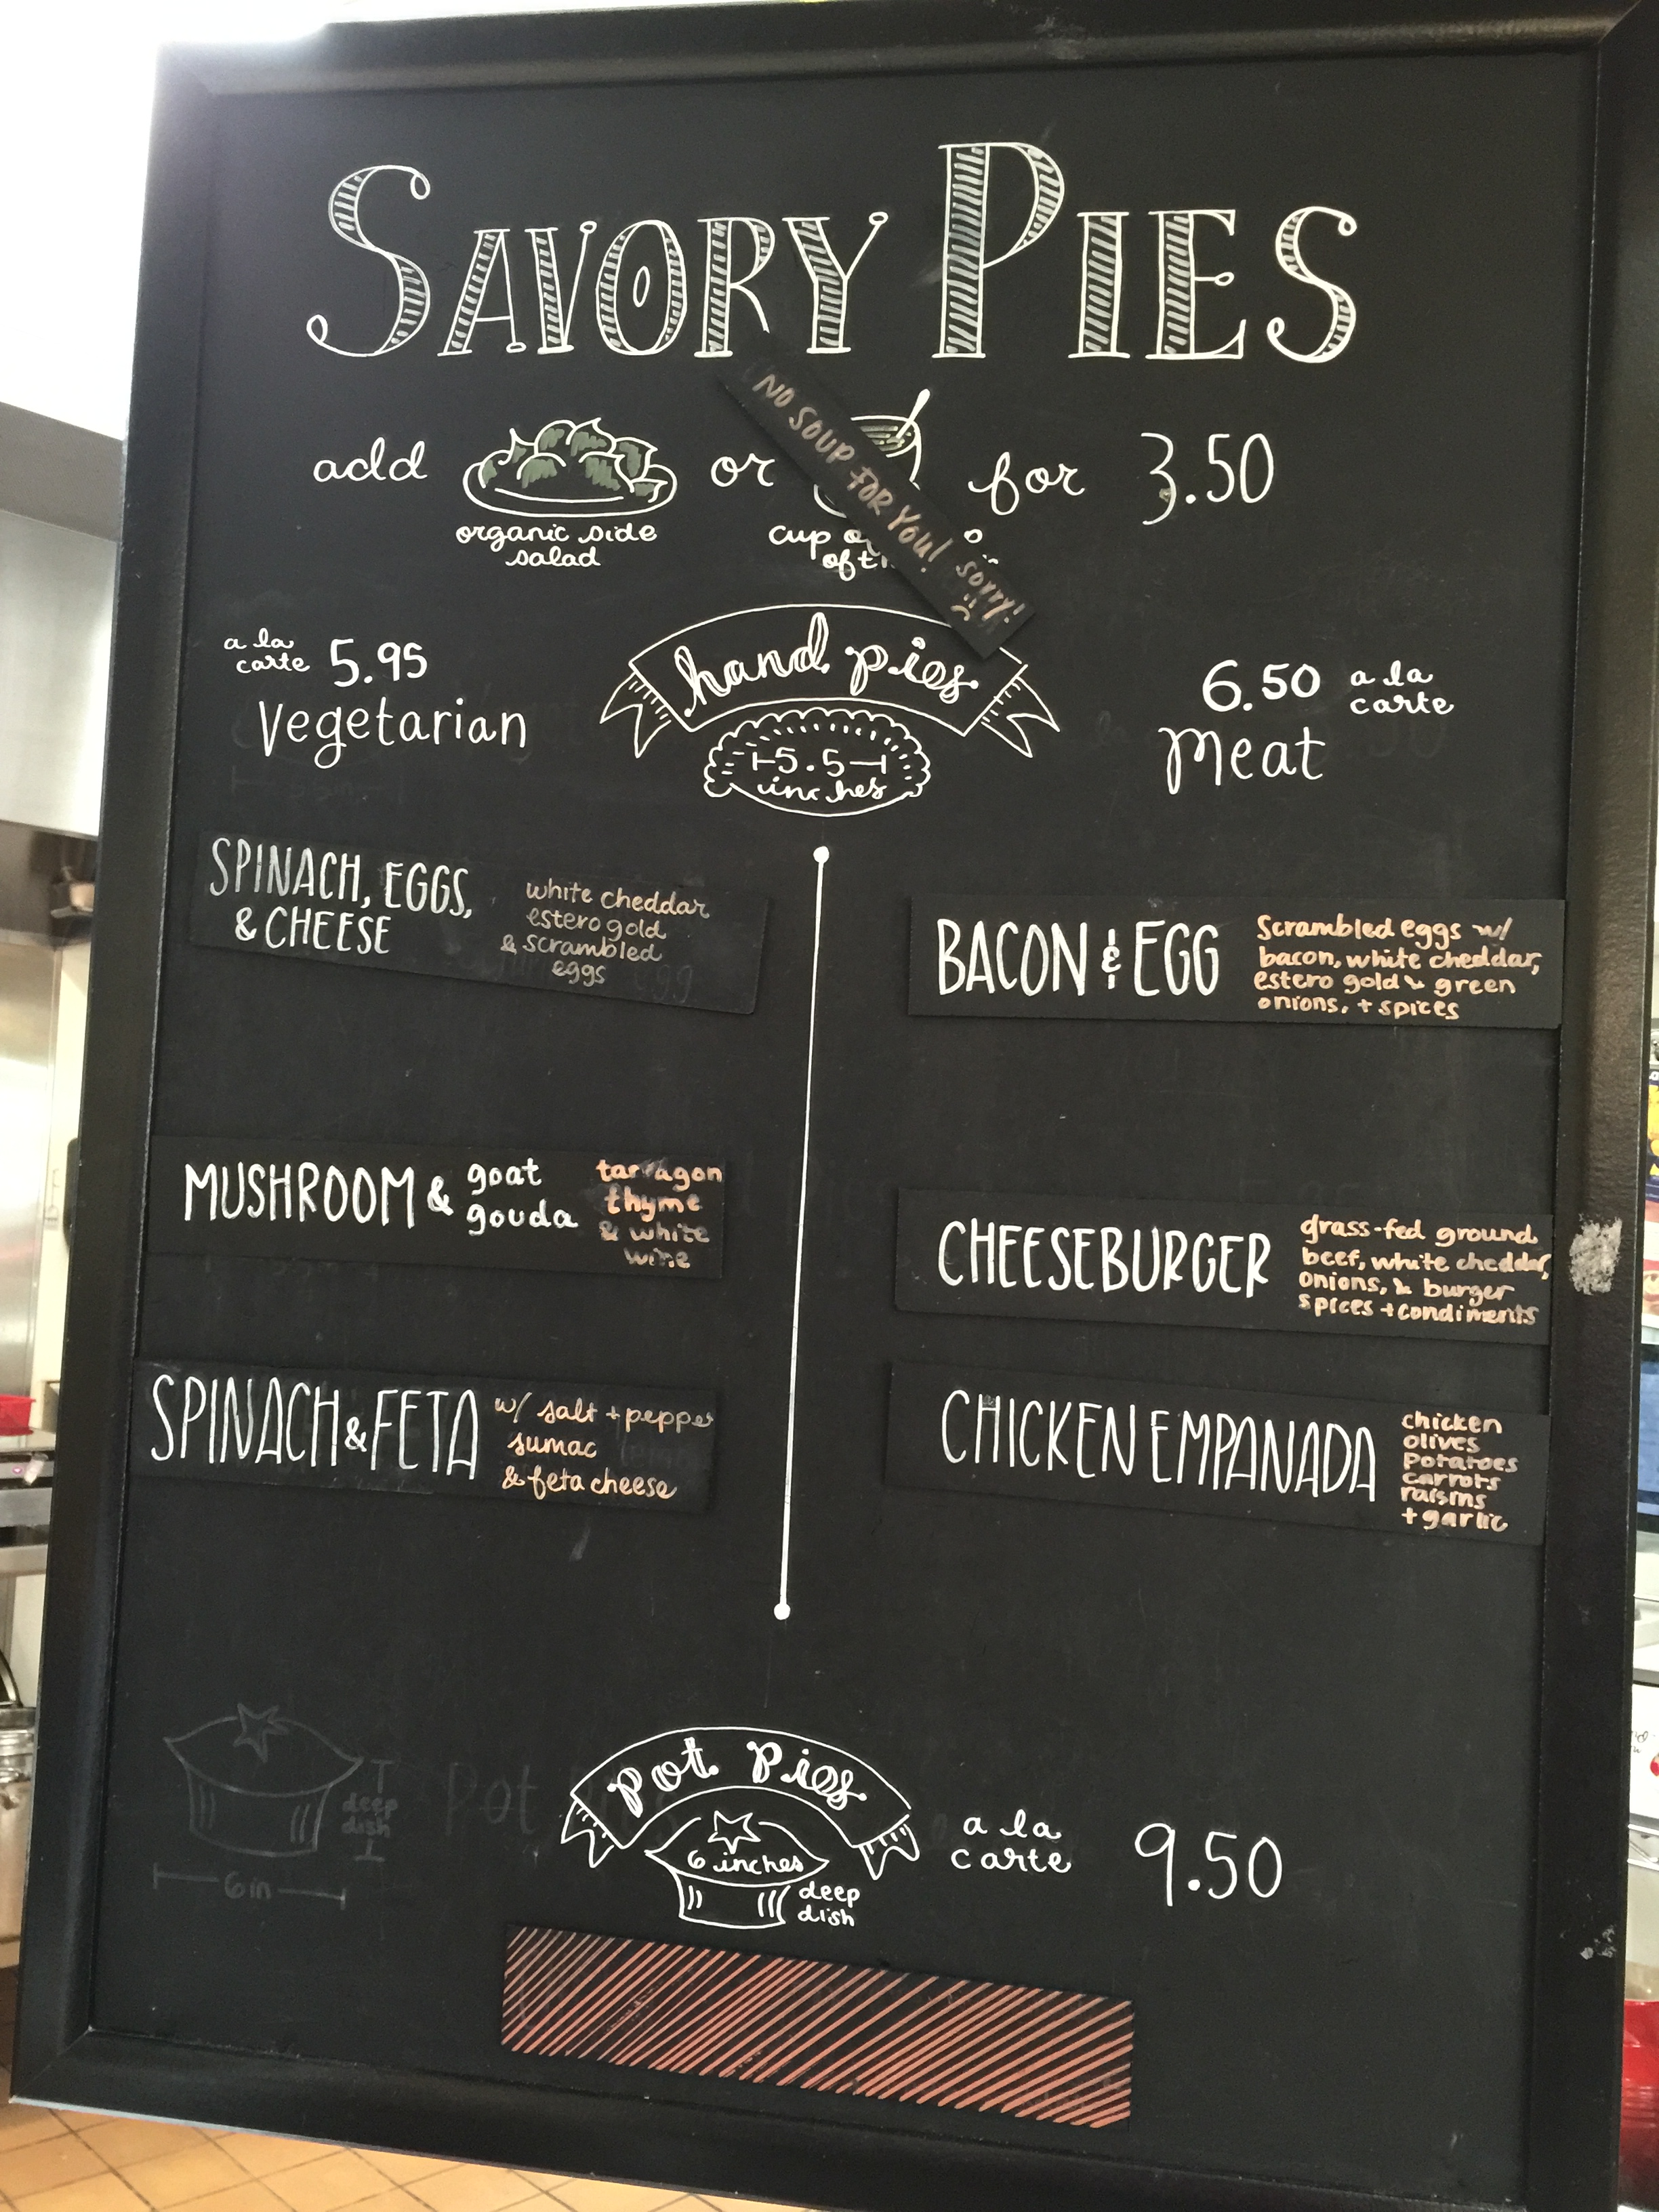 SAVORY PIES
add
organic side
salad
or
cup
of
NO SOUP FOR YOU! sorry!
for 3.50
a la
carte 5.95
Vegetarian
hand pies
5.5
inches
6.50 a la
carte
Meat
SPINACH, EGGS,
& CHEESE
white cheddar
estero gold
& scrambled
eggs
MUSHROOM & goat
gouda
tarragon
thyme
& white
wine
SPINACH & FETA
w/ salt + pepper
sumac
& feta cheese
BACON & EGG
Scrambled eggs w/
bacon, white cheddar,
estero gold & green
onions, + spices
CHEESEBURGER
grass-fed ground
beef, white cheddar,
onions, & burger
spices + condiments
CHICKEN EMPANADA
chicken
olives
potatoes
carrots
raisins
+ garlic
pot pies
6 inches
deep
dish
a la
carte 9.50
deep
dish
6in
Pot